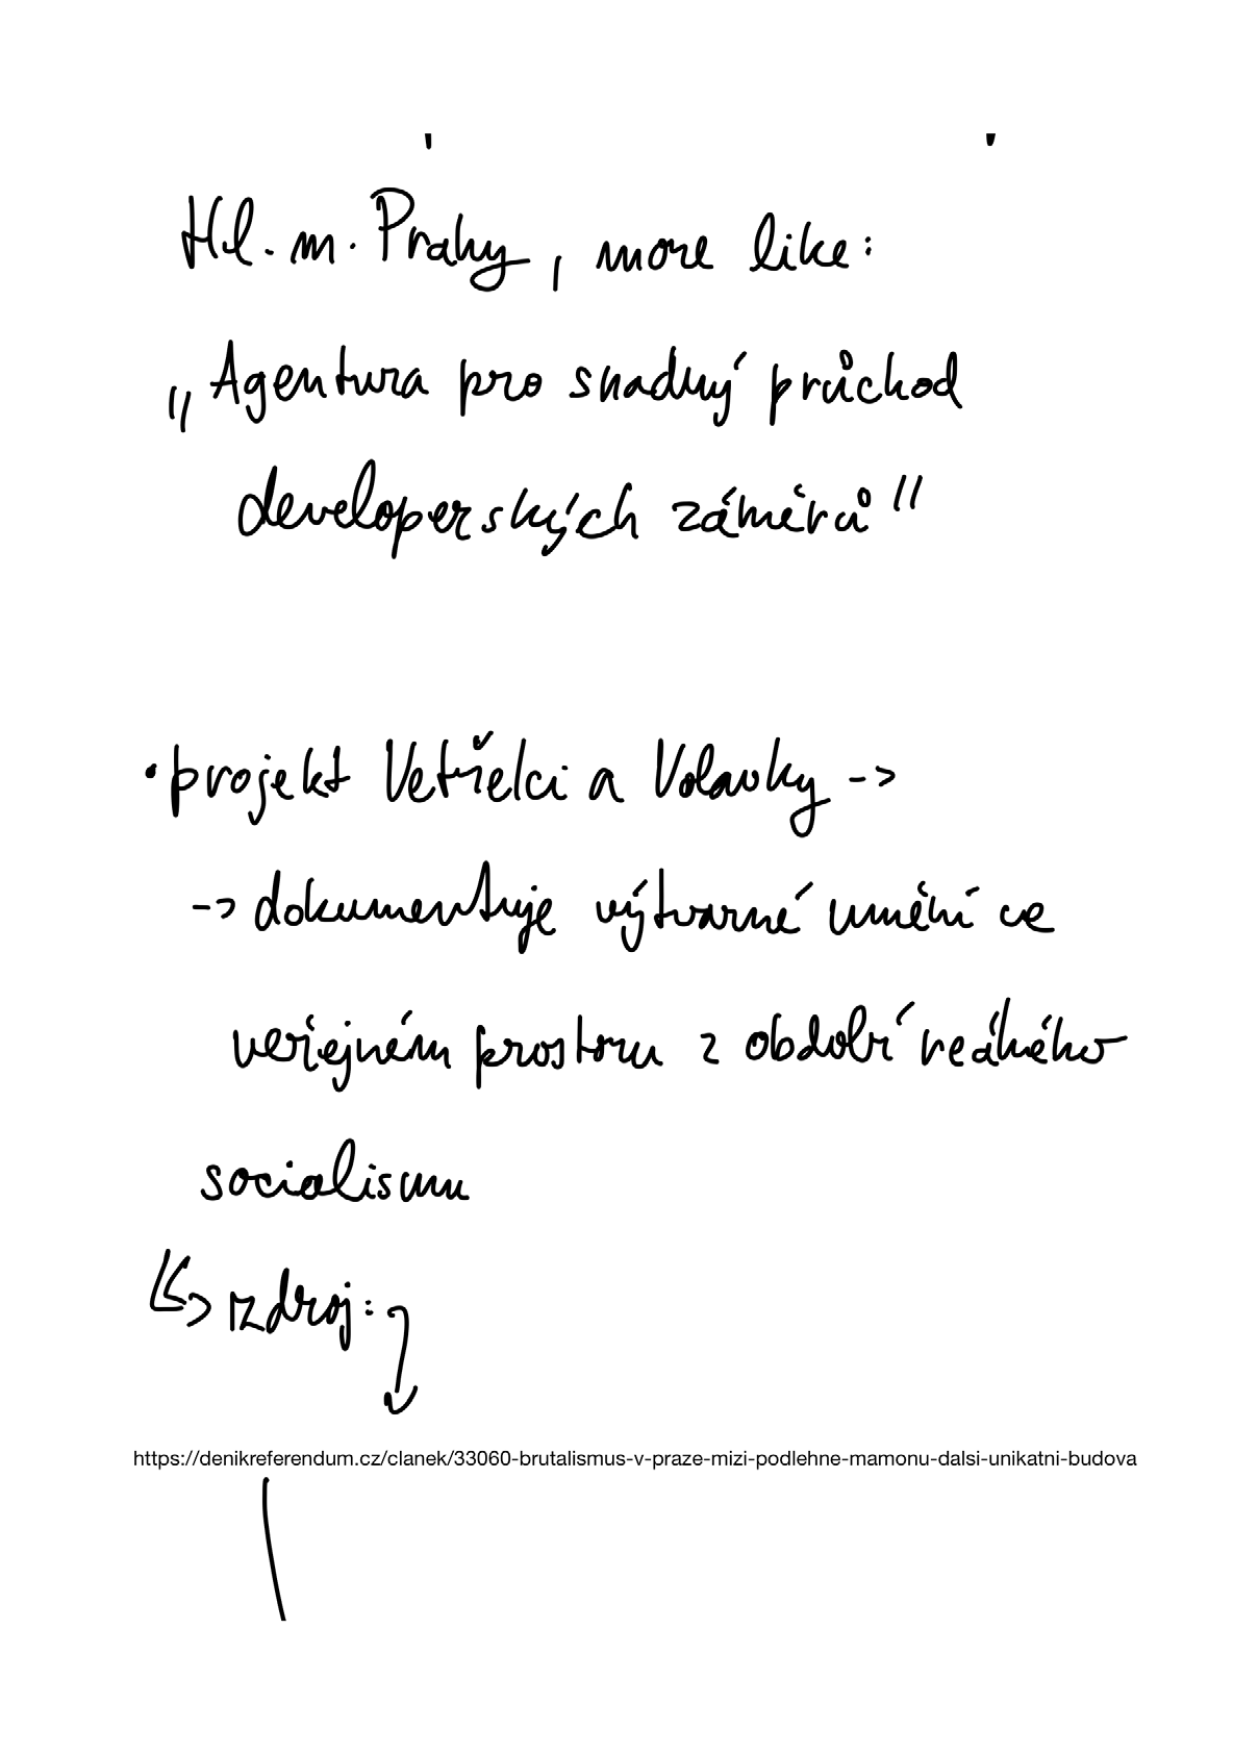 Hl. m. Prahy, more like:
„Agentura pro snadný průchod
developerských záměrů"
• projekt Vetřelci a Volavky ->
-> dokumentuje výtvarné umění ve
veřejném prostoru z období reálného
socialismu
zdroj:
https://denikreferendum.cz/clanek/33060-brutalismus-v-praze-mizi-podlehne-mamonu-dalsi-unikatni-budova